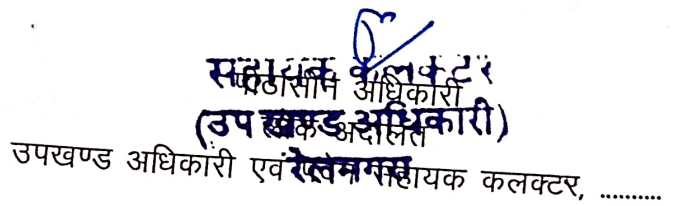 सहायक कलक्टर
पीठासीन अधिकारी
(उप खण्ड अधिकारी)
लोक अदालत
रेलमगरा
उपखण्ड अधिकारी एवं पदेन सहायक कलक्टर, ..........